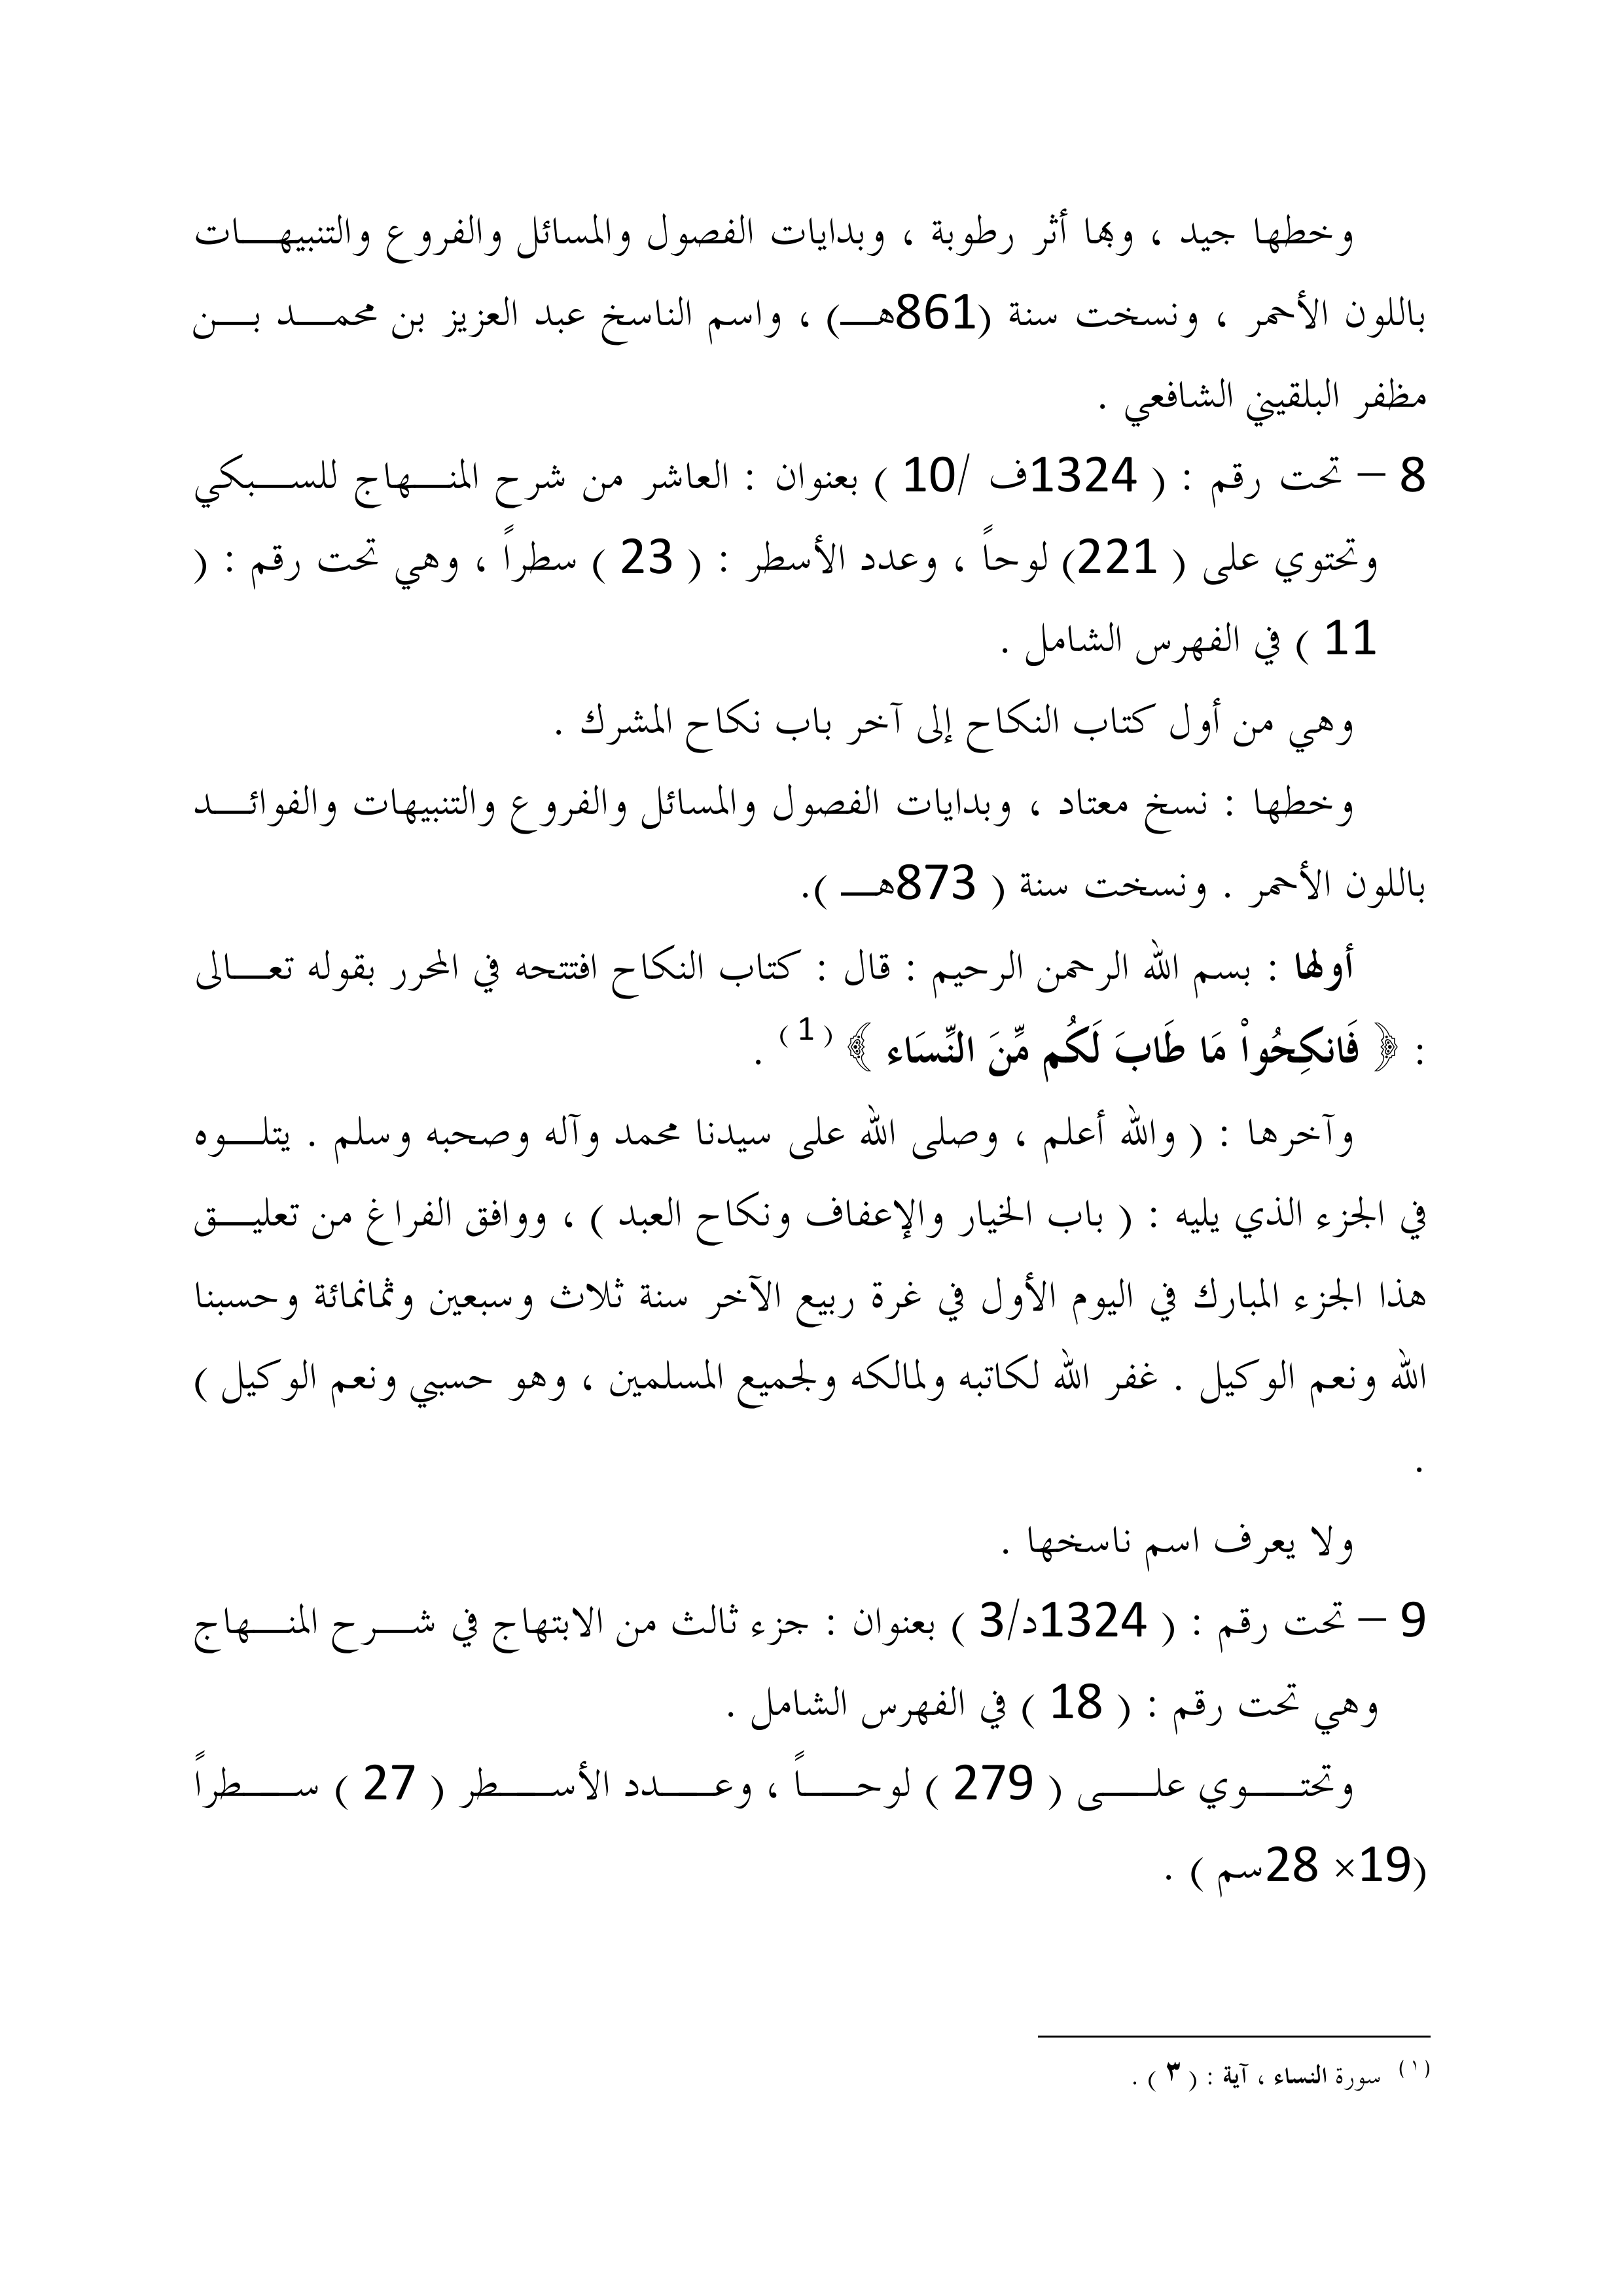 وخطها جيد ، وبها أثر رطوبة ، وبدايات الفصول والمسائل والفروع والتنبيهات
باللون الأحمر ، ونسخت سنة (861هـ) ، واسم الناسخ عبد العزيز بن محمد بن
مظفر البلقيني الشافعي .
8 – تحت رقم : ( 1324ف /10 ) بعنوان : العاشر من شرح المنهاج للسبكي
وتحتوي على ( 221) لوحاً ، وعدد الأسطر : ( 23 ) سطراً ، وهي تحت رقم : (
11 ) في الفهرس الشامل .
وهي من أول كتاب النكاح إلى آخر باب نكاح المشرك .
وخطها : نسخ معتاد ، وبدايات الفصول والمسائل والفروع والتنبيهات والفوائد
باللون الأحمر . ونسخت سنة ( 873هـ ).
أولها : بسم الله الرحمن الرحيم : قال : كتاب النكاح افتتحه في المحرر بقوله تعالى
: ﴿ فَانكِحُواْ مَا طَابَ لَكُم مِّنَ النِّسَاء ﴾ ( 1 ) .
وآخرها : ( والله أعلم ، وصلى الله على سيدنا محمد وآله وصحبه وسلم . يتلوه
في الجزء الذي يليه : ( باب الخيار والإعفاف ونكاح العبد ) ، ووافق الفراغ من تعليق
هذا الجزء المبارك في اليوم الأول في غرة ربيع الآخر سنة ثلاث وسبعين وثمانمائة وحسبنا
الله ونعم الوكيل . غفر الله لكاتبه ولمالكه ولجميع المسلمين ، وهو حسبي ونعم الوكيل )
.
ولا يعرف اسم ناسخها .
9 – تحت رقم : ( 1324د/3 ) بعنوان : جزء ثالث من الابتهاج في شرح المنهاج
وهي تحت رقم : ( 18 ) في الفهرس الشامل .
وتحتوي على ( 279 ) لوحاً ، وعدد الأسطر ( 27 ) سطراً
(19× 28سم ) .
(١) سورة النساء ، آية : ( ٣ ) .